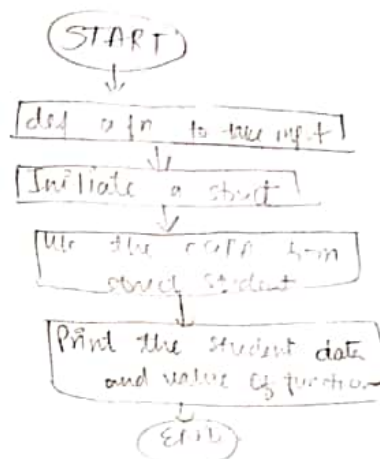 START
def a fn to take input
Initiate a struct
the CGPA from
struct student
Print the student data
and value of function
END